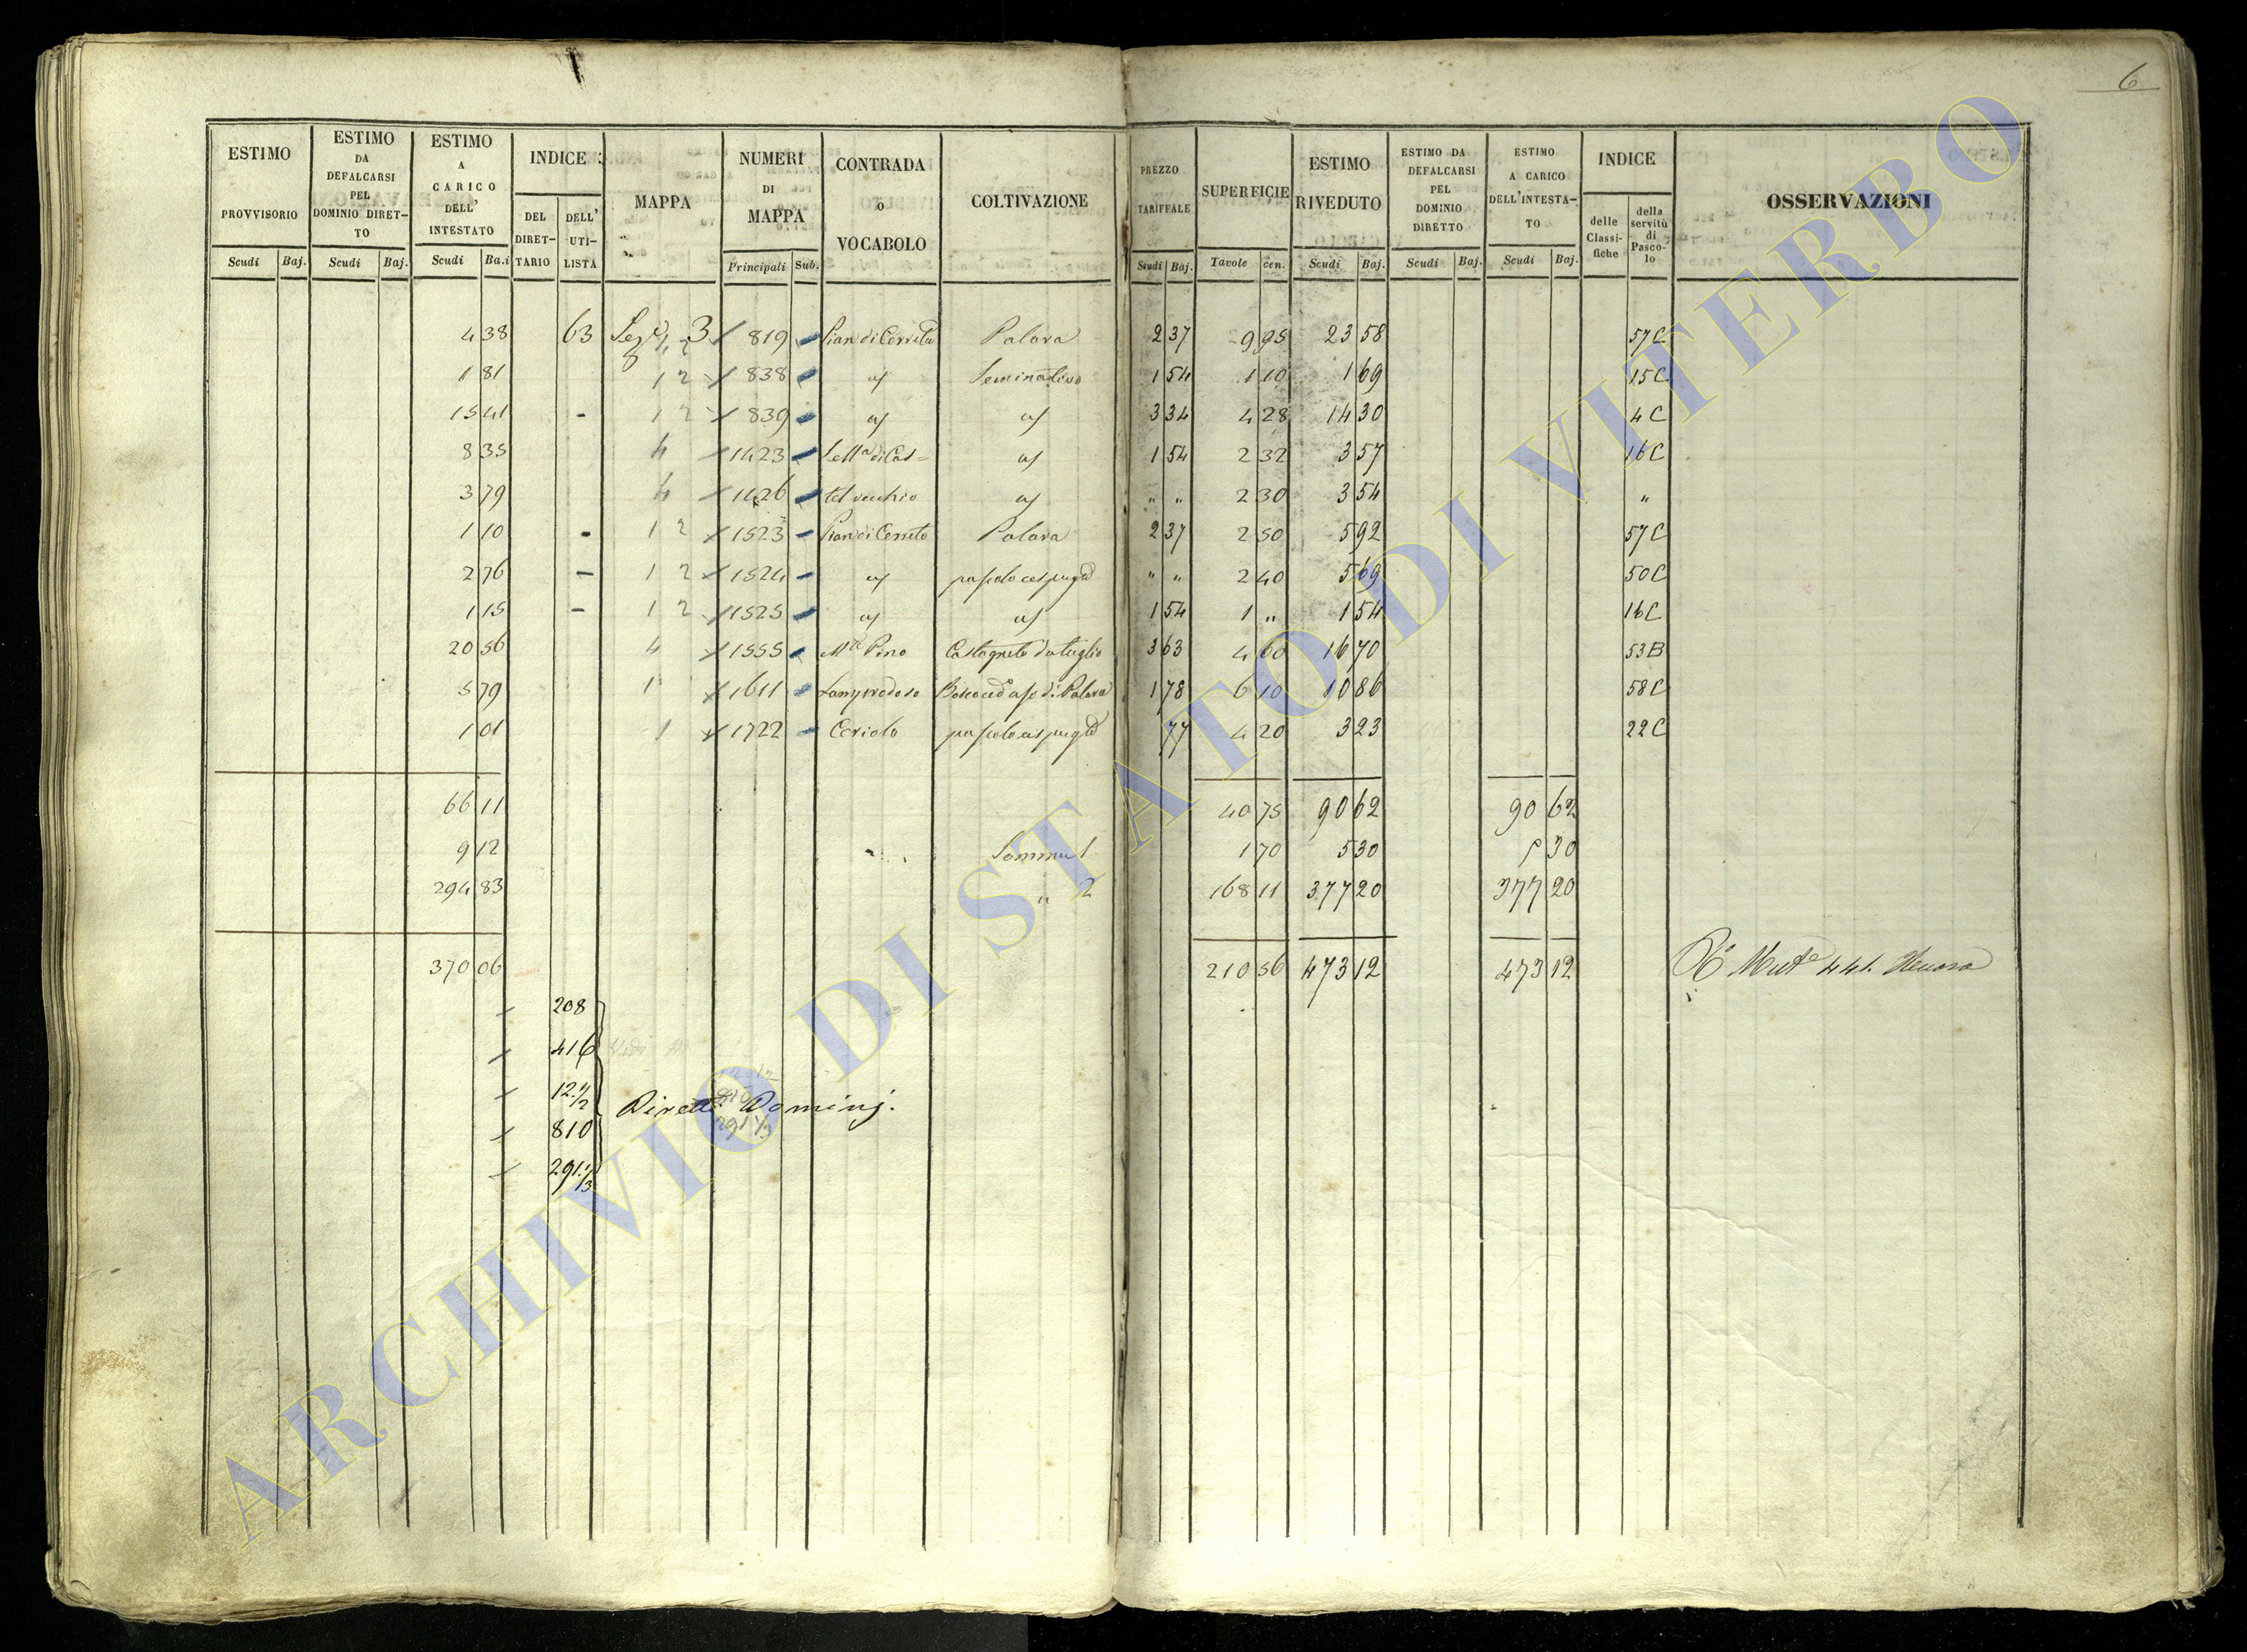 6
ESTIMO PROVVISORIO | ESTIMO DA DEFALCARSI PEL DOMINIO DIRET-TO | ESTIMO A CARICO DELL' INTESTATO | INDICE | MAPPA | NUMERI DI MAPPA | CONTRADA O VOCABOLO | COLTIVAZIONE | PREZZO TARIFFALE | SUPERFICIE | ESTIMO RIVEDUTO | ESTIMO DA DEFALCARSI PEL DOMINIO DIRETTO | ESTIMO A CARICO DELL'INTESTA-TO | INDICE | OSSERVAZIONI
DEL DIRET-TARIO | DELL' UTI-LISTA | delle Classi-fiche | della servitù di Pasco-lo
Scudi | Baj. | Scudi | Baj. | Scudi | Ba.i | Principali | Sub. | Scudi | Baj. | Tavole | cen. | Scudi | Baj. | Scudi | Baj. | Scudi | Baj.
4 38 | 63 | Sez. 3 | 819 | Pian di Cerreto | Palara | 2 37 | 9 95 | 23 58 | 57C
1 81 | 1 2 | 838 | Seminativo | 1 54 | 1 10 | 1 69 | 15C
15 41 | - | 1 2 | 839 | 3 34 | 4 28 | 14 30 | 4C
8 35 | 4 | 1423 | di Cas= | 1 54 | 2 32 | 3 57 | 16C
3 79 | 4 | 1426 | tel vecchio | " " | 2 30 | 3 54 | "
1 10 | - | 1 2 | 1523 | Pian di Cerreto | Palara | 2 37 | 2 50 | 5 92 | 57C
2 76 | - | 1 2 | 1524 | pascolo cespugto | " " | 2 40 | 5 69 | 50C
1 15 | - | 1 2 | 1525 | 1 54 | 1 " | 1 54 | 16C
20 56 | 4 | 1555 | Mte Pino | Castagneto da taglio | 3 63 | 4 60 | 16 70 | 53B
5 79 | 1 | 1611 | Bosco ced. di Palara | 1 78 | 6 10 | 10 86 | 58C
1 01 | 1 | 1722 | Ceriolo | pascolo cespugto | 77 | 4 20 | 3 23 | 22C
66 11 | 40 75 | 90 62 | 90 62
9 12 | Somma 1 | 1 70 | 5 30 | 5 30
294 83 | " 2 | 168 11 | 377 20 | 377 20
370 06 | 210 56 | 473 12 | 473 12
208
416
12 1/2
Diretti Dominj.
810
291 1/3
ARCHIVIO DI STATO DI VITERBO